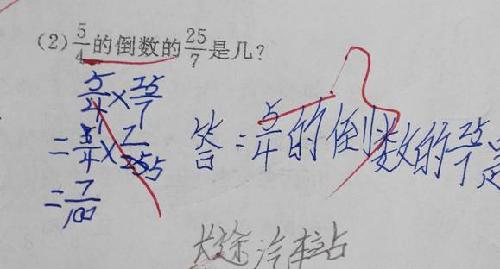 (2) 5/4的倒数的25/7是几?
5/4×25/7
=5/4×7/255
=7/100
答:5/4的倒数的25/7是
长途汽车站